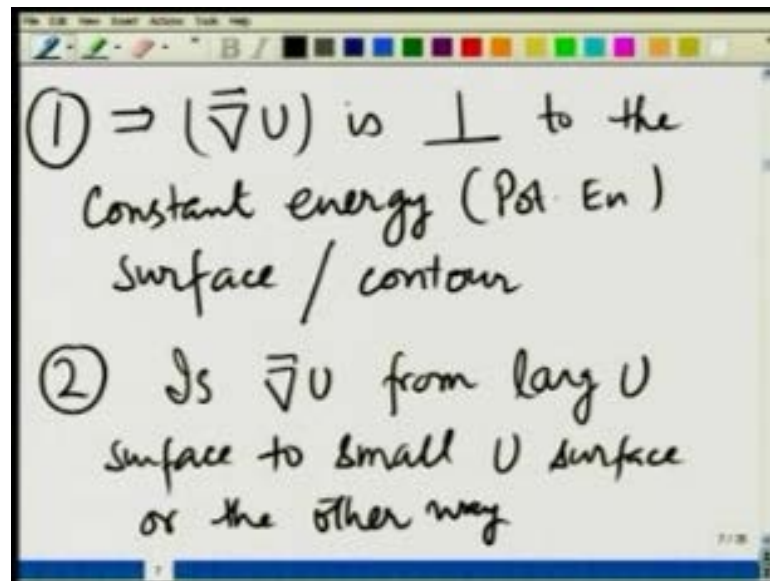 File Edit View Insert Actions Tools Help
B I
① ⇒ (∇⃗U) is ⊥ to the
Constant energy (Pot. En)
surface / contour
② Is ∇⃗U from larg U
surface to small U surface
or the other way
7